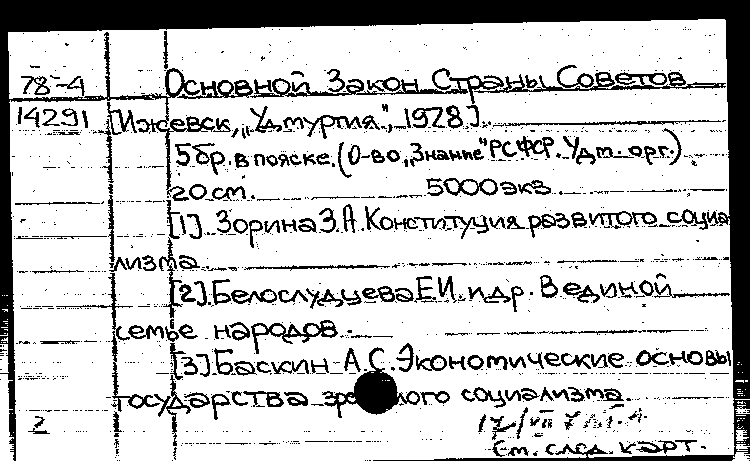 78-4 Основной Закон Страны Советов
14291 [Ижевск, „Удмуртия", 1978].
5 бр. в пояске. (О-во „Знание" РСФСР. Удм. орг.)
20 см. 5000 экз.
[1]. Зорина З.А. Конституция развитого социа
лизма
[2]. Белослудцева Е.И. и др. В единой
семье народов.
[3]. Баскин А.С. Экономические основы
государства зрелого социализма.
2
См. след. карт.